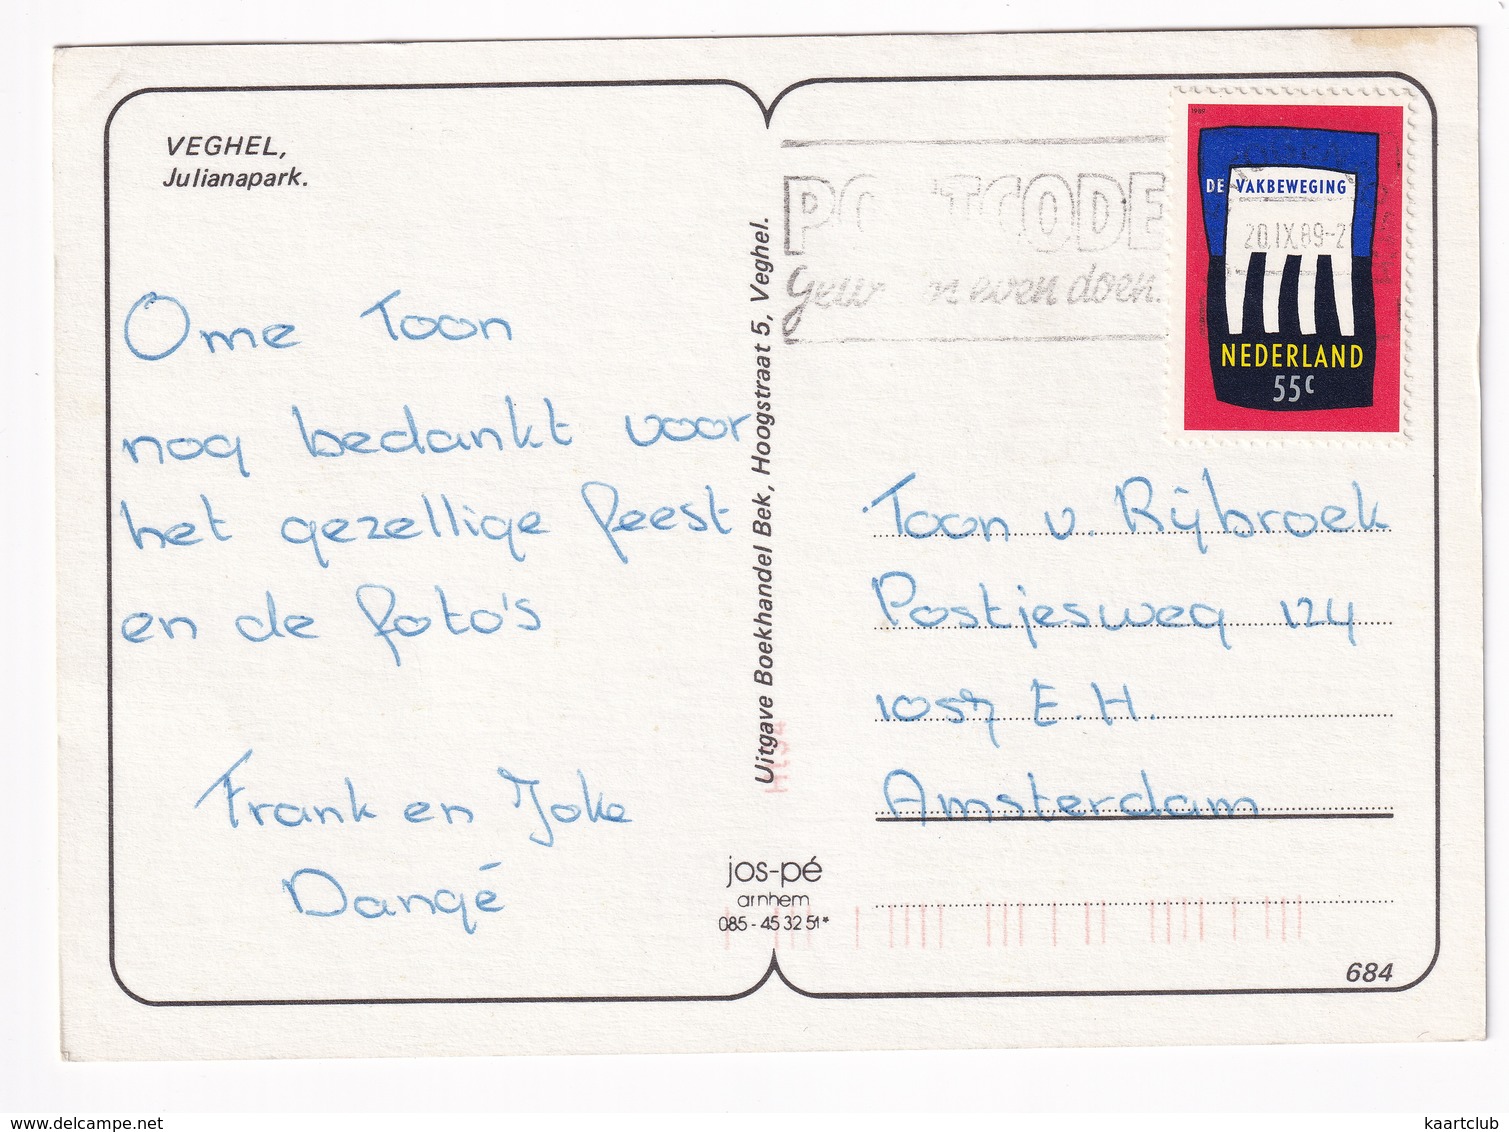 VEGHEL,
Julianapark.
Ome Toon
nog bedankt voor
het gezellige feest
en de foto's
Frank en Joke
Dangé
Uitgave Boekhandel Bek, Hoogstraat 5, Veghel.
jos-pé
arnhem
085-45 32 51*
POSTCODE
even doen.
1989
DE VAKBEWEGING
20.IX.89-2
NEDERLAND
55c
Toon v. Rijbroek
Postjesweg 124
1057 E.H.
Amsterdam
684
kaartclub
delcampe.net